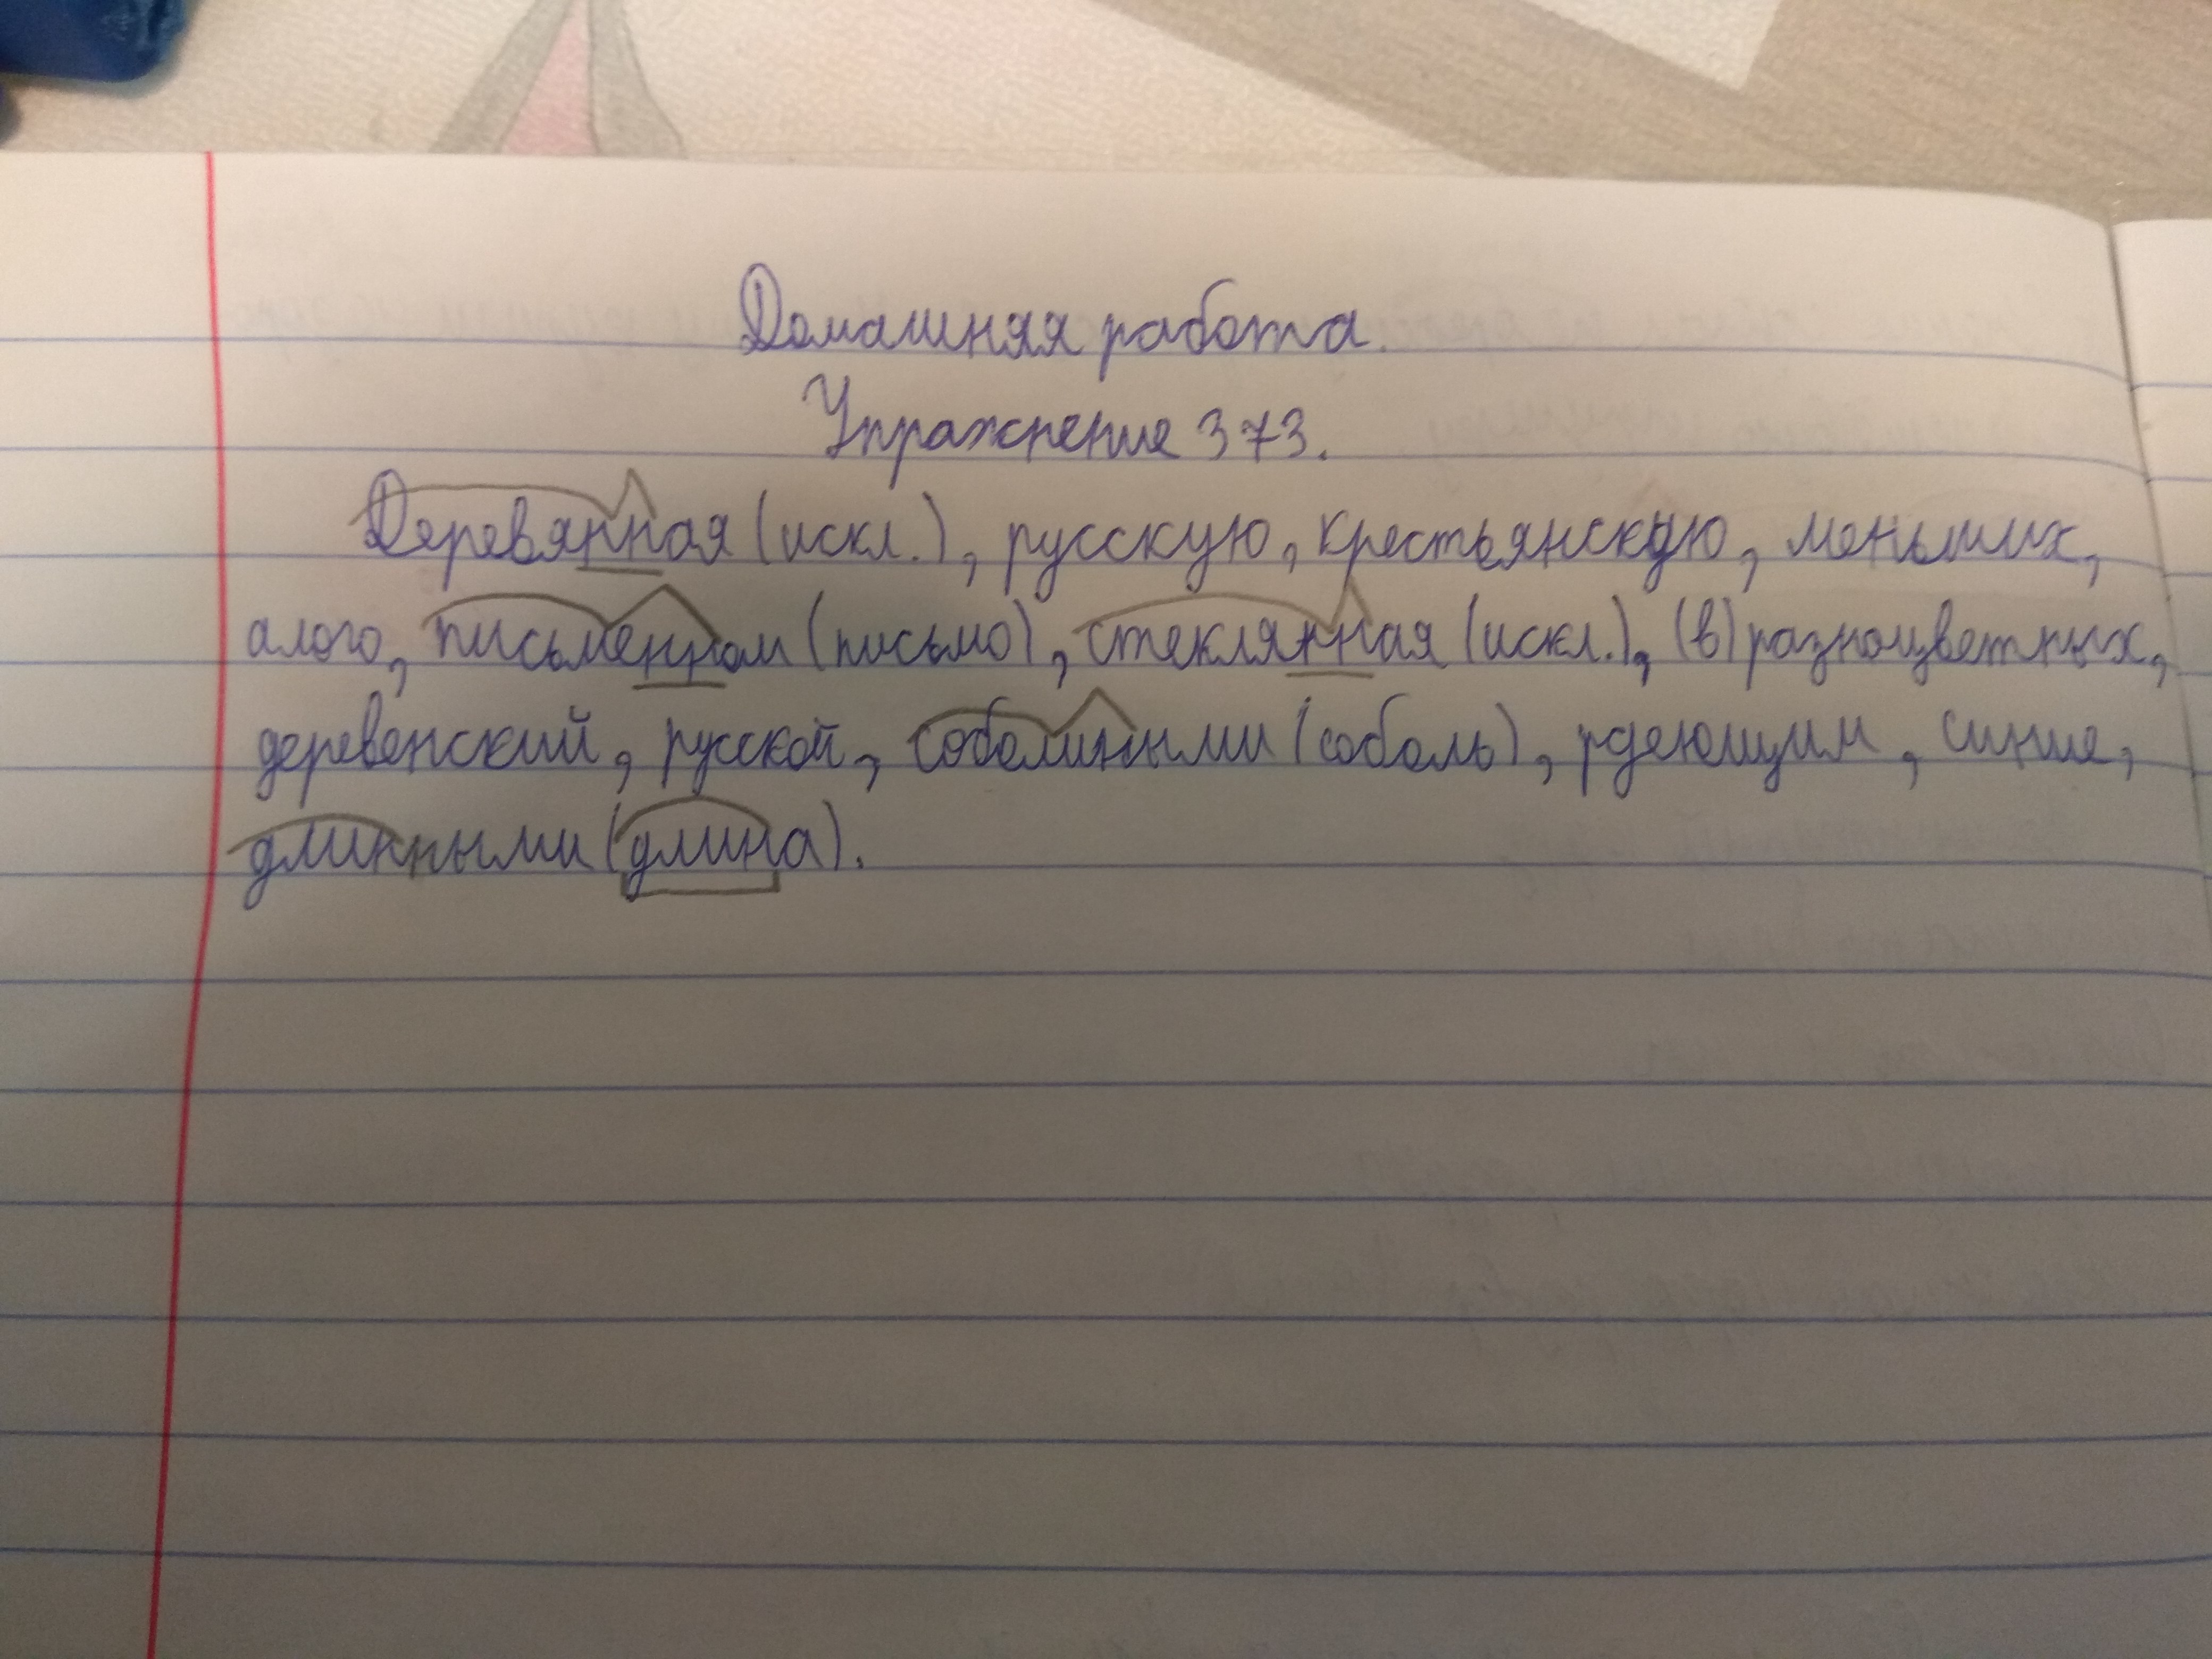 Домашняя работа.
Упражнение 373.
Деревянная (искл.), русскую, крестьянскую, меньших,
алого, письменном (письмо), стеклянная (искл.), (в) разноцветных,
деревенский, русской, соболиными (соболь), рдеющим, синие,
длинными (длина).